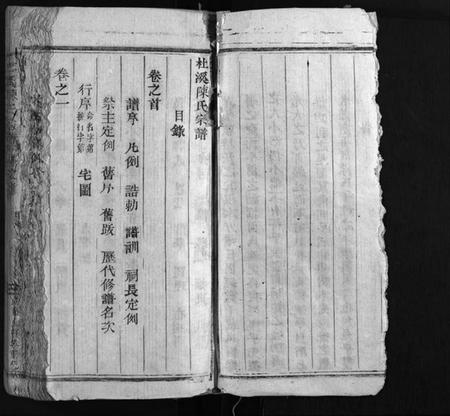 杜溪陳氏宗譜
目錄
卷之首
譜序 凡例 誥勅 譜訓 祠長定例
祭主定例 舊序 舊跋 歷代修譜名次
行序 命名字第 排行字第 宅圖
卷之一